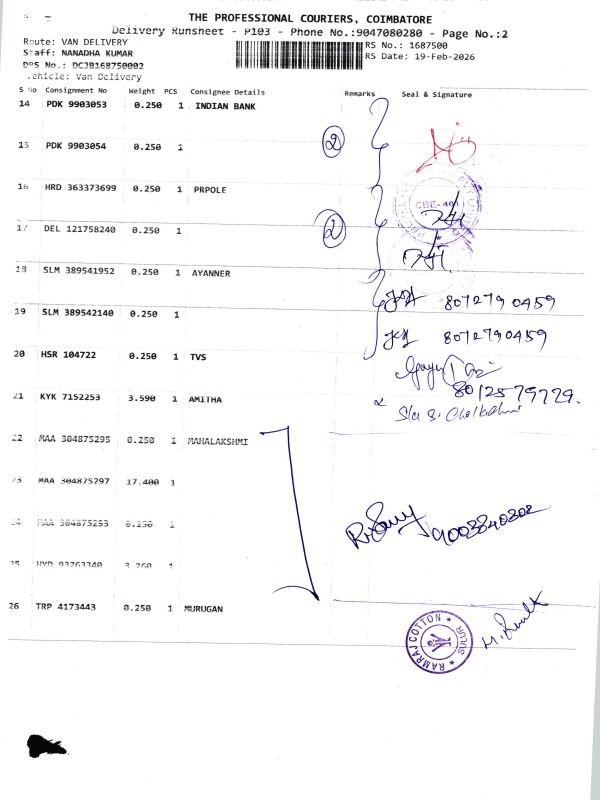 THE PROFESSIONAL COURIERS, COIMBATORE
Delivery Runsheet - P103 - Phone No.:9047080280 - Page No.:2
Route: VAN DELIVERY
RS No.: 1687500
Staff: NANADHA KUMAR
RS Date: 19-Feb-2026
DRS No.: DCJB168750002
Vehicle: Van Delivery
S No Consignment No Weight PCS Consignee Details Remarks Seal & Signature
14 PDK 9903053 0.250 1 INDIAN BANK
15 PDK 9903054 0.250 1
2
16 HRD 363373699 0.250 1 PRPOLE
CBE-401
17 DEL 121758240 0.250 1
2
18 SLM 389541952 0.250 1 AYANNER
8072790459
19 SLM 389542140 0.250 1
8072790459
20 HSR 104722 0.250 1 TVS
8012579729.
21 KYK 7152253 3.590 1 AMITHA
22 MAA 304875295 0.250 1 MAHALAKSHMI
23 MAA 304875297 17.400 1
24 MAA 304875293 0.250 1
9003840302
25 HYD 93263340 3.260 1
26 TRP 4173443 0.250 1 MURUGAN
RAMRAJ COTTON * SULUR *